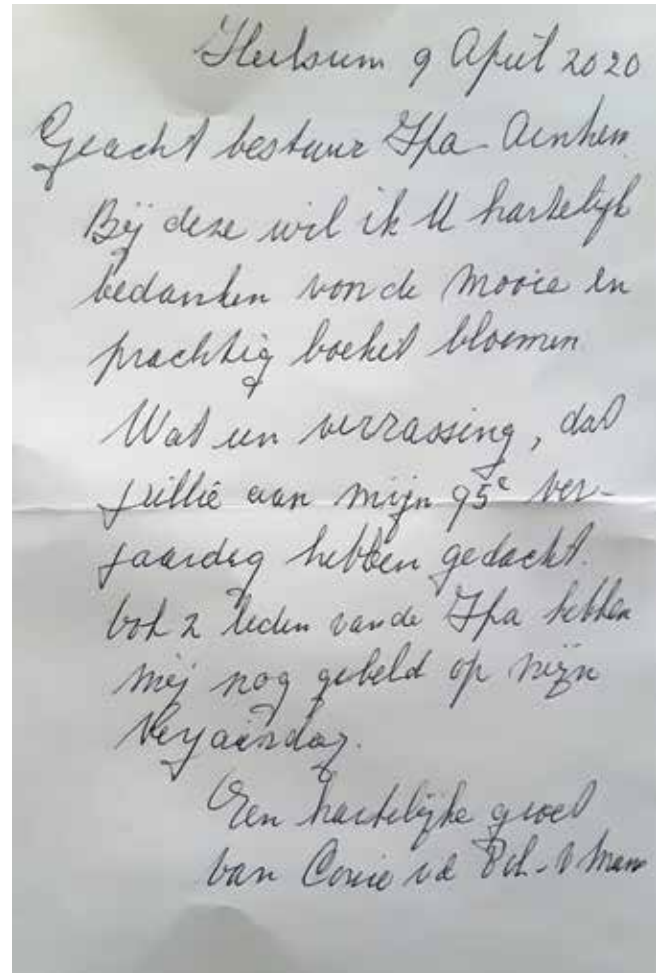 Heelsum 9 April 2020
Geacht bestuur Ipa Arnhem
Bij deze wil ik U hartelijk
bedanken voor de mooie en
prachtig boeket bloemen
Wat een verrassing, dat
jullie aan mijn 95e ver-
jaardag hebben gedacht.
Ook 2 leden van de Ipa hebben
mij nog gebeld op mijn
Verjaardag.
Een hartelijke groet
van Corrie vd